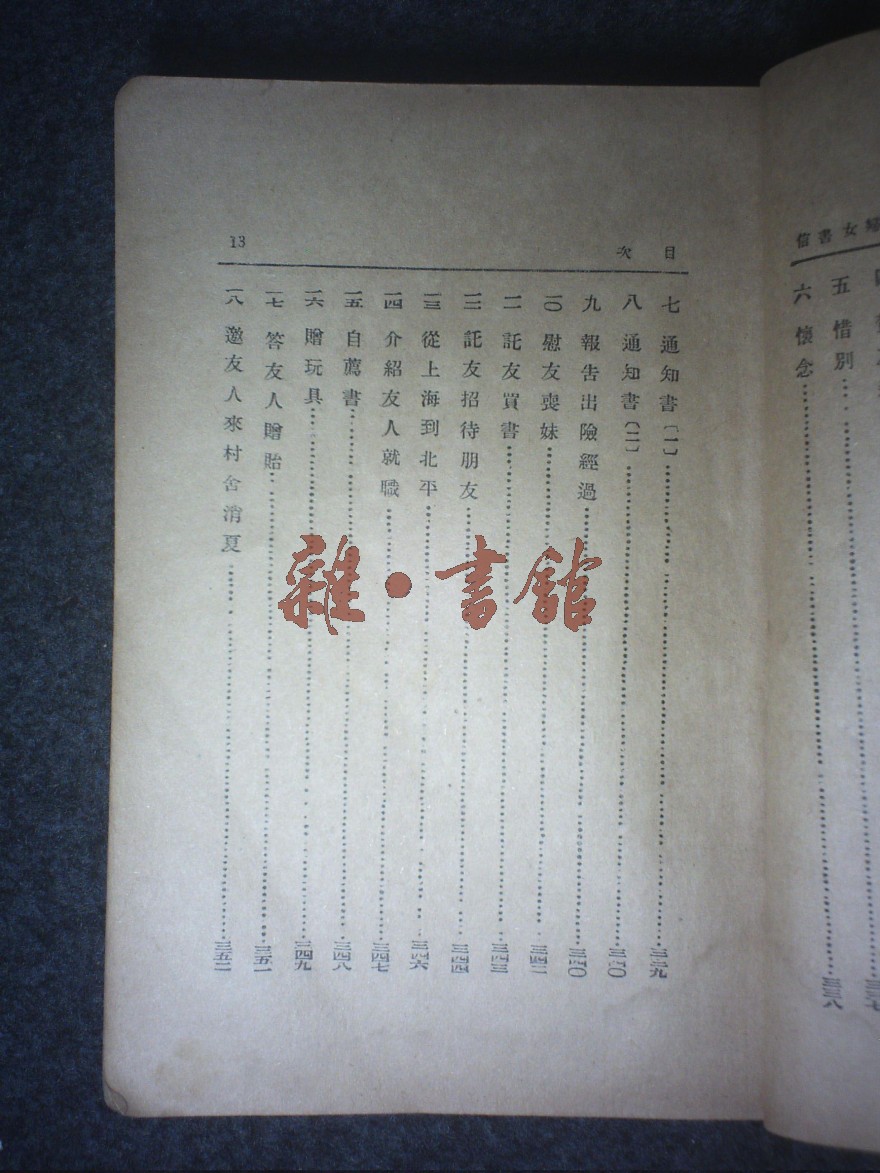 婦女書信
五 惜別……三三七
六 懷念……三三八
目次
13
七 通知書(一)……三三九
八 通知書(二)……三四〇
九 報告出險經過……三四〇
一〇 慰友喪妹……三四二
一一 託友買書……三四三
一二 託友招待朋友……三四四
一三 從上海到北平……三四六
一四 介紹友人就職……三四七
一五 自薦書……三四八
一六 贈玩具……三四九
一七 答友人贈貽……三五一
一八 邀友人來村舍消夏……三五二
雜·書館